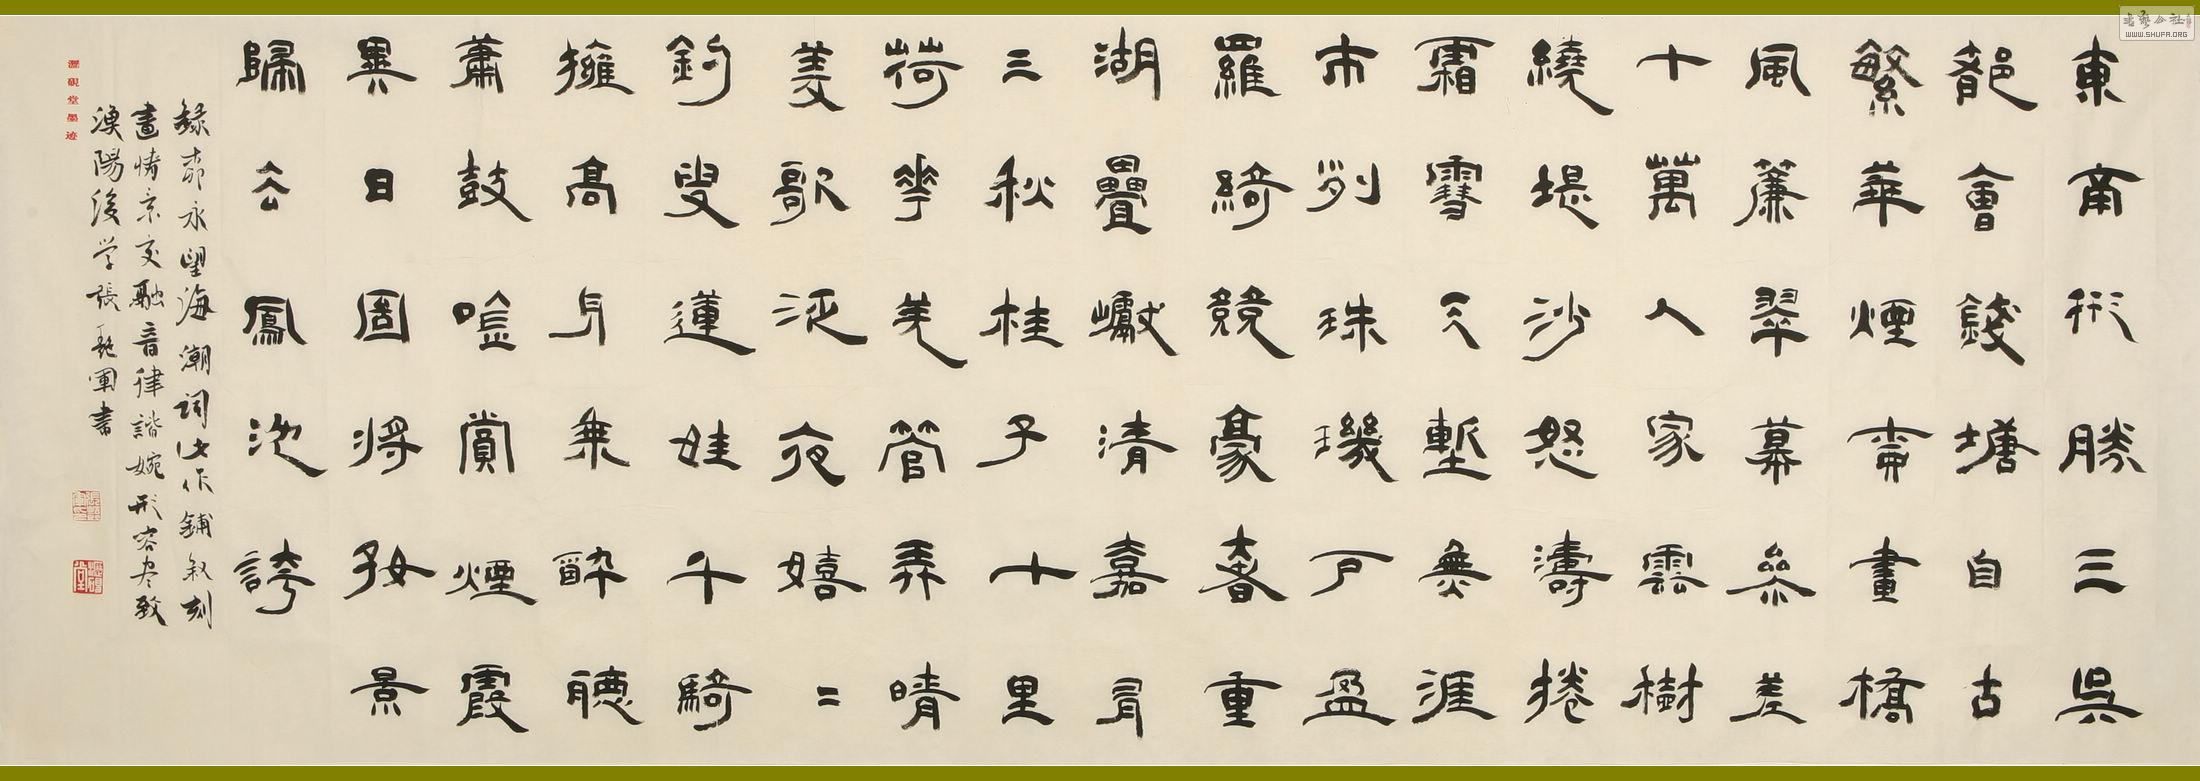 東南形勝三吳
都會錢塘自古
繁華煙柳畫橋
風簾翠幕參差
十萬人家雲樹
繞堤沙怒濤捲
霜雪天塹無涯
市列珠璣戶盈
羅綺競豪奢重
湖疊巘清嘉有
三秋桂子十里
荷花羌管弄晴
菱歌泛夜嬉〻
釣叟蓮娃千騎
擁高牙乘醉聽
蕭鼓吟賞煙霞
異日圖將好景
歸去鳳池誇
錄柳永望海潮詞此作鋪敘刻
畫情景交融音律諧婉形容尽致
漁陽後学張軍書
硯堂墨迹
书艺公社
WWW.SHUFA.ORG